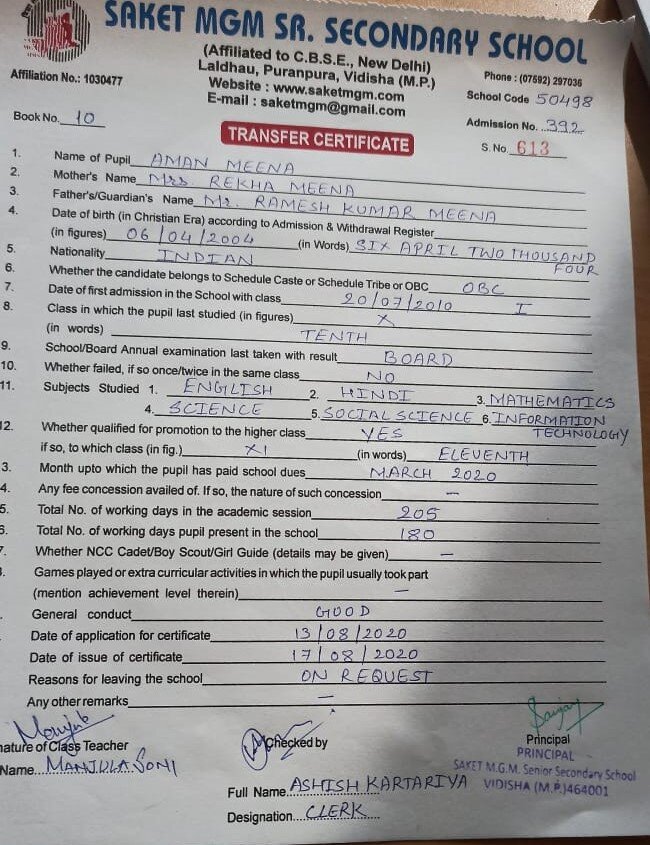 SAKET MGM SR. SECONDARY SCHOOL
(Affiliated to C.B.S.E., New Delhi)
Laldhau, Puranpura, Vidisha (M.P.)
Affiliation No.: 1030477
Website : www.saketmgm.com
Phone : (07592) 297036
E-mail : saketmgm@gmail.com
School Code 50498
Book No. 10
Admission No. 392
TRANSFER CERTIFICATE
S. No. 613
1. Name of Pupil AMAN MEENA
2. Mother's Name Mrs. REKHA MEENA
3. Father's/Guardian's Name Mr. RAMESH KUMAR MEENA
4. Date of birth (in Christian Era) according to Admission & Withdrawal Register
(in figures) 06/04/2004 (in Words) SIX APRIL TWO THOUSAND
FOUR
5. Nationality INDIAN
6. Whether the candidate belongs to Schedule Caste or Schedule Tribe or OBC OBC
7. Date of first admission in the School with class 20/07/2010 I
8. Class in which the pupil last studied (in figures) X
(in words) TENTH
9. School/Board Annual examination last taken with result BOARD
10. Whether failed, if so once/twice in the same class NO
11. Subjects Studied 1. ENGLISH 2. HINDI 3. MATHEMATICS
4. SCIENCE 5. SOCIAL SCIENCE 6. INFORMATION
TECHNOLOGY
12. Whether qualified for promotion to the higher class YES
if so, to which class (in fig.) XI (in words) ELEVENTH
3. Month upto which the pupil has paid school dues MARCH 2020
4. Any fee concession availed of. If so, the nature of such concession —
5. Total No. of working days in the academic session 205
6. Total No. of working days pupil present in the school 180
7. Whether NCC Cadet/Boy Scout/Girl Guide (details may be given) —
Games played or extra curricular activities in which the pupil usually took part
(mention achievement level therein) —
General conduct GOOD
Date of application for certificate 13/08/2020
Date of issue of certificate 17/08/2020
Reasons for leaving the school ON REQUEST
Any other remarks —
nature of Class Teacher
Checked by
Principal
PRINCIPAL
Name MANJULA SONI
SAKET M.G.M. Senior Secondary School
VIDISHA (M.P.) 464001
Full Name ASHISH KARTARIYA
Designation CLERK